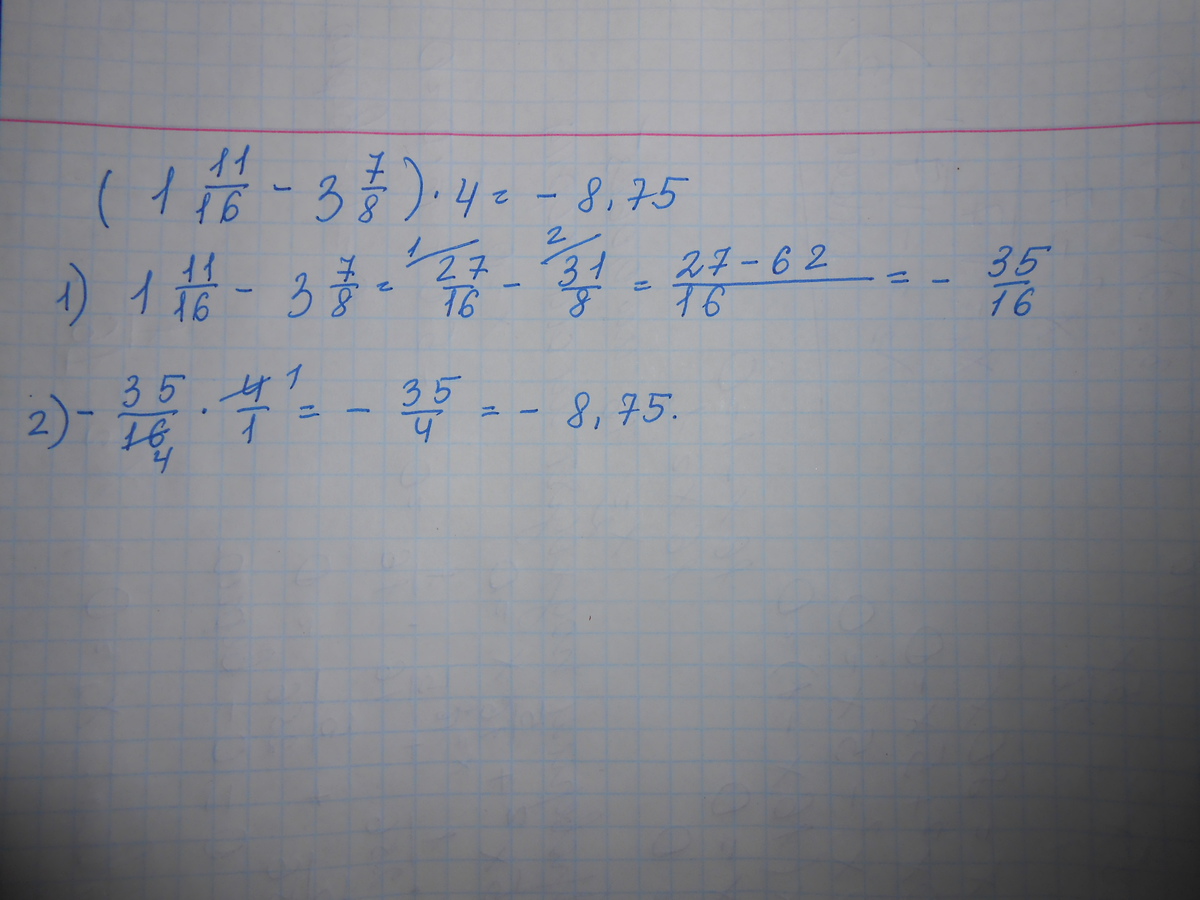 ( 1 11/16 - 3 7/8 ) · 4 = - 8,75
1) 1 11/16 - 3 7/8 = 1/ 27/16 - 2/ 31/8 = 27-62/16 = - 35/16
2) - 35/16 4 · 4/1 1 = - 35/4 = - 8,75.